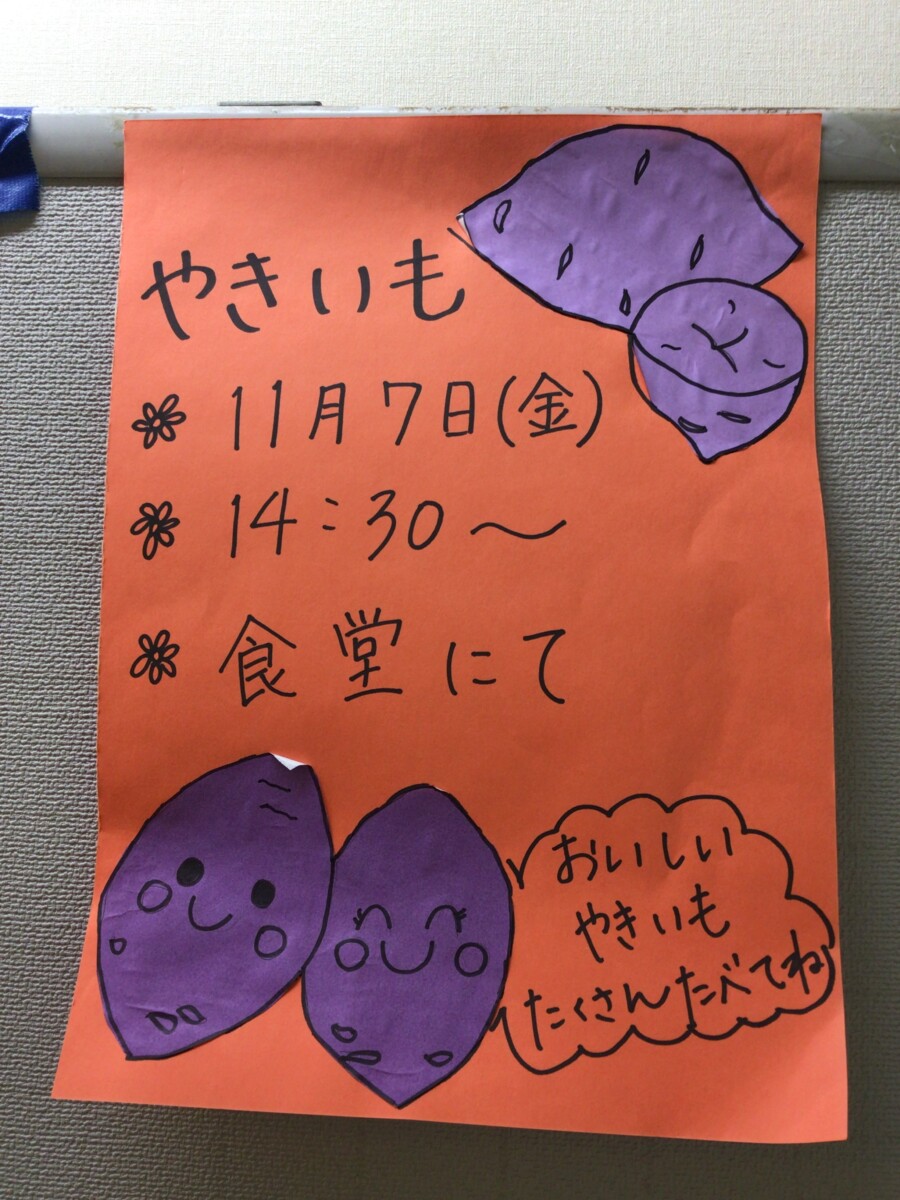 やきいも
11月7日(金)
14:30〜
食堂にて
おいしい
やきいも
たくさんたべてね